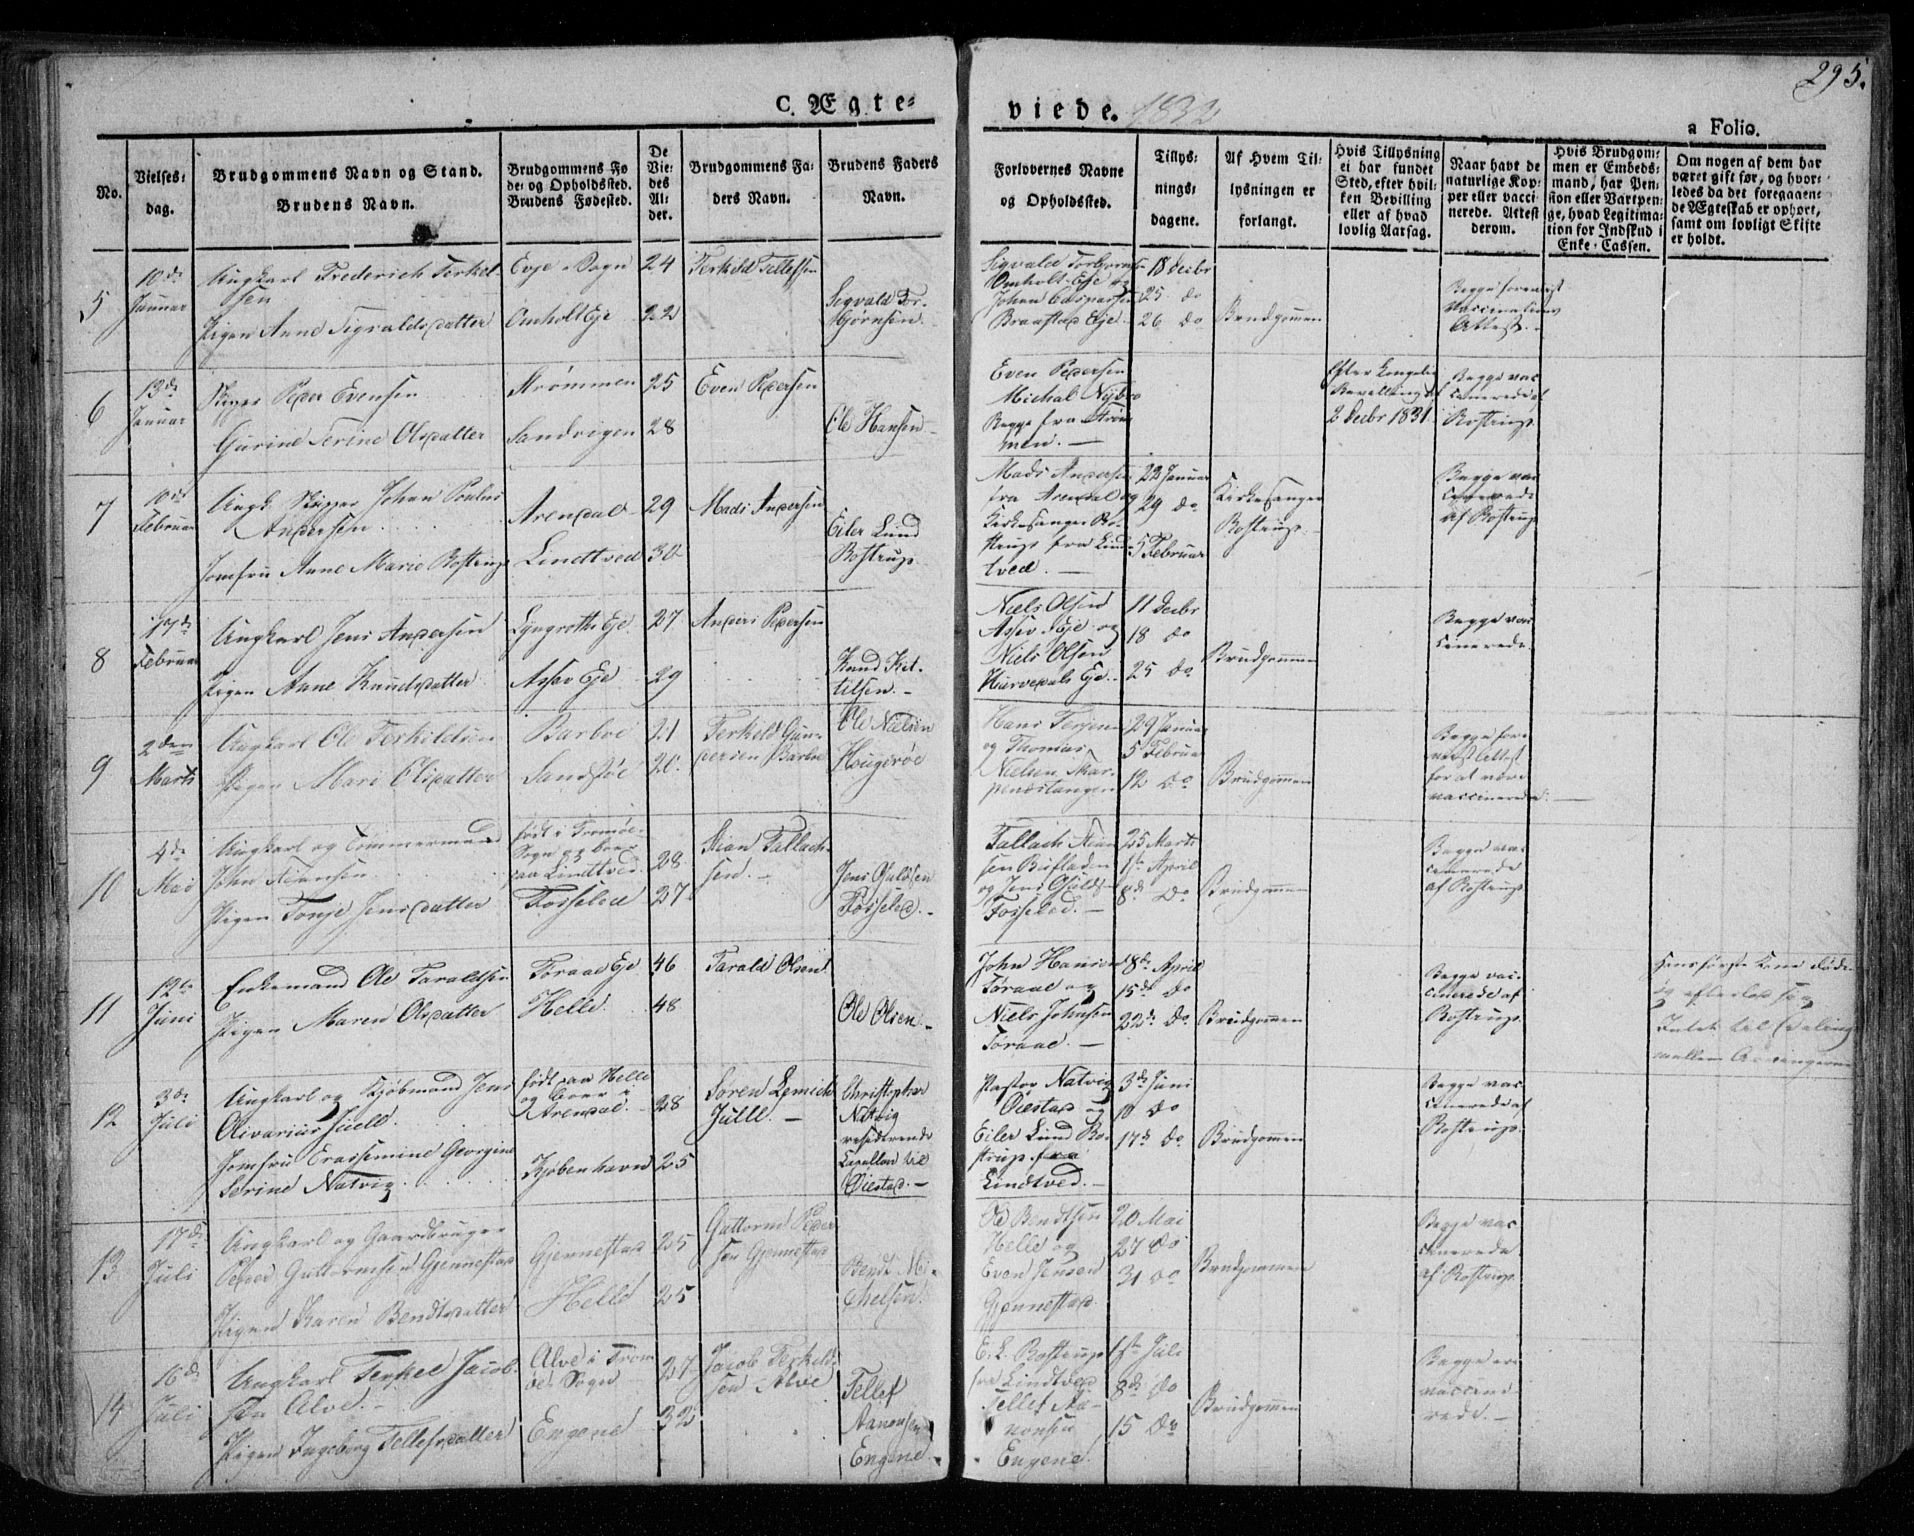 295.
C. Ægte-
viede. 1832
a Folio.
No.
Vielses-
dag.
Brudgommens Navn og Stand.
Brudens Navn.
Brudgommens Fø
de- og Opholdssted.
Brudens Fødested.
De
Vie-
des
Al-
der.
Brudgommens Fa-
ders Navn.
Brudens Faders
Navn.
Forlovernes Navne
og Opholdssted.
Tillys-
nings-
dagene.
Af Hvem Til-
lysningen er
forlangt.
Hvis Tillysning
ei har fundet
Sted, efter hvil-
ken Bevilling
eller af hvad
lovlig Aarsag.
Naar havt de
naturlige Kop-
per eller vacci-
nerede. Attest
derom.
Hvis Brudgom-
men er Embeds-
mand, har Pen-
sion eller Vartpen-
ge, hvad Legitima-
tion for Indskud i
Enke-Cassen.
Om nogen af dem har
været gift før, og hvor-
ledes da det foregaaen-
de Ægteskab er ophørt,
samt om lovligt Skifte
er holdt.
5
10de
Januar
Ungkarl Frederich Terkel-
sen
Pigen Anne Sigvaldsdatter
Evje Sogn
Omholt Eje
24
22
Terkild Tellefsen
Segvald Tor-
bjørnsen
Sigvald Torbjørnsen
Omholt Eje og
Johan Casparsen
Braastad Eje
18 Decbr
25 do
26 do
Brudgommen
Begge forevist
Vaccinations
Attest.
6
13de
Januar
Peder Evensen
Gurine Terine Olsdatter
Strømmen
Sandvigen
25
28
Even Pedersen
Ole Hansen
Even Pedersen
Michal
Begge fra Strøm-
men.
Efter kongelig
Bevilling af
2 Decbr 1831
Begge vac-
cinerede af
Rostrup
7
10de
Februar
Ungk. Skipper Johan Poulus
Andersen
Jomfru Anne Marie Rostrup
Arendal
Lindtved
29
30
Mads Andersen
Eiler Lund
Rostrup.
Mads Andersen
fra Arendal og
Kirkesanger Ro-
strup fra Lind-
tved.
22 Januar
29 do
5 Februar
Kirkesanger
Rostrup
Begge vac-
cinerede
af Rostrup
8
17de
Februar
Ungkarl Jens Andersen
Pigen Anne Knudsdatter
Lyngroth Eje
Assev Eje
27
29
Anders Pedersen
Knud Kit-
tilsen.
Niels Olsen
Assev Eje og
Niels Olsen
Hurvedals Eje
11 Decbr
18 do
25 do
Brudgommen
Begge vac-
cinerede
9
2den
Marts
Ungkarl Ole Terkildsen
Pigen Mari Olsdatter
Barboe
Sandføe
21
20
Terkild Gun-
dersen Barboe
Ole Nielsen
Hougerøe
Hans Terjesen
og Thomas
Nielsen
29 Januar
5 Februar
12 do
Brudgommen
Begge fore-
vist Attest
for at være
vaccinerede.
10
4de
Mai
Ungkarl og Tømmermand
John Stiansen
Pigen Tonje Jensdatter
født i Tromøe
Sogn og boer
paa Lindtved
Fosseled
28
27
Stian Tallach-
sen.
Jens Osuldsen
Fosseled.
Tallach Stian-
sen
og Jens Osulds-
Fosseled.
25 Marts
1ste April
8de do
Brudgommen
Begge vac-
cinerede
af Rostrup
11
12te
Juni
Enkemand Ole Taraldsen
Pigen Maren Olsdatter
Toraae Eje
Helle
46
48
Tarald Olsen
Ole Olsen
John Hansen
Toraae og
Niels Johnsen
Toraae.
8de April
15de do
22de do
Brudgommen
Begge vac-
cinerede af
Rostrup
Hans første Kone døde
og efterlod sig
Intet til Deling
mellem Arvingerne
12
3de
Juli
Ungkarl og Kjøbmand Jens
Olivarius Juell
Jomfru Erassemine Georgine
Serine Natvig
født paa Helle
og boer i
Arendal
Kjøbenhavn
28
25
Søren Lemich
Juell.
Christopher
Natvig
residerende
Capellan til
Øiestad.
Pastor Natvig
Øiestad og
Eiler Lund Ro-
strup fra
Lindtved.
3de Juni
10 do
17de do
Brudgommen
Begge vac-
cinerede af
Rostrup
13
17de
Juli
Ungkarl og Gaardbruger
Peder Guttormsen Gjennestad
Pigen Karen Bendtsdatter
Gjennestad
Helle
25
25
Guttorm Peder-
sen Gjennestad
Bendt Mi-
chelsen
Ole Bendtsen
Helle og
Even Jensen
Gjennestad
20 Mai
27 do
31 do
Brudgommen
Begge vac-
cinerede
af Rostrup
14
16de
Juli
Ungkarl Terkel Jacob-
sen Alve
Pigen Ingeborg Tellefsdatter
Alve i Trom-
øe Sogn
Engene
27
32
Jacob Terkild-
sen Alve
Tellef
Aanonsen
Engene
E. L. Rostrup
fra Lindtved
Tellef Aa-
nonsen
Engene
1ste Juli
8de do
15 do
Brudgommen
Begge ere
vaccine-
rede.